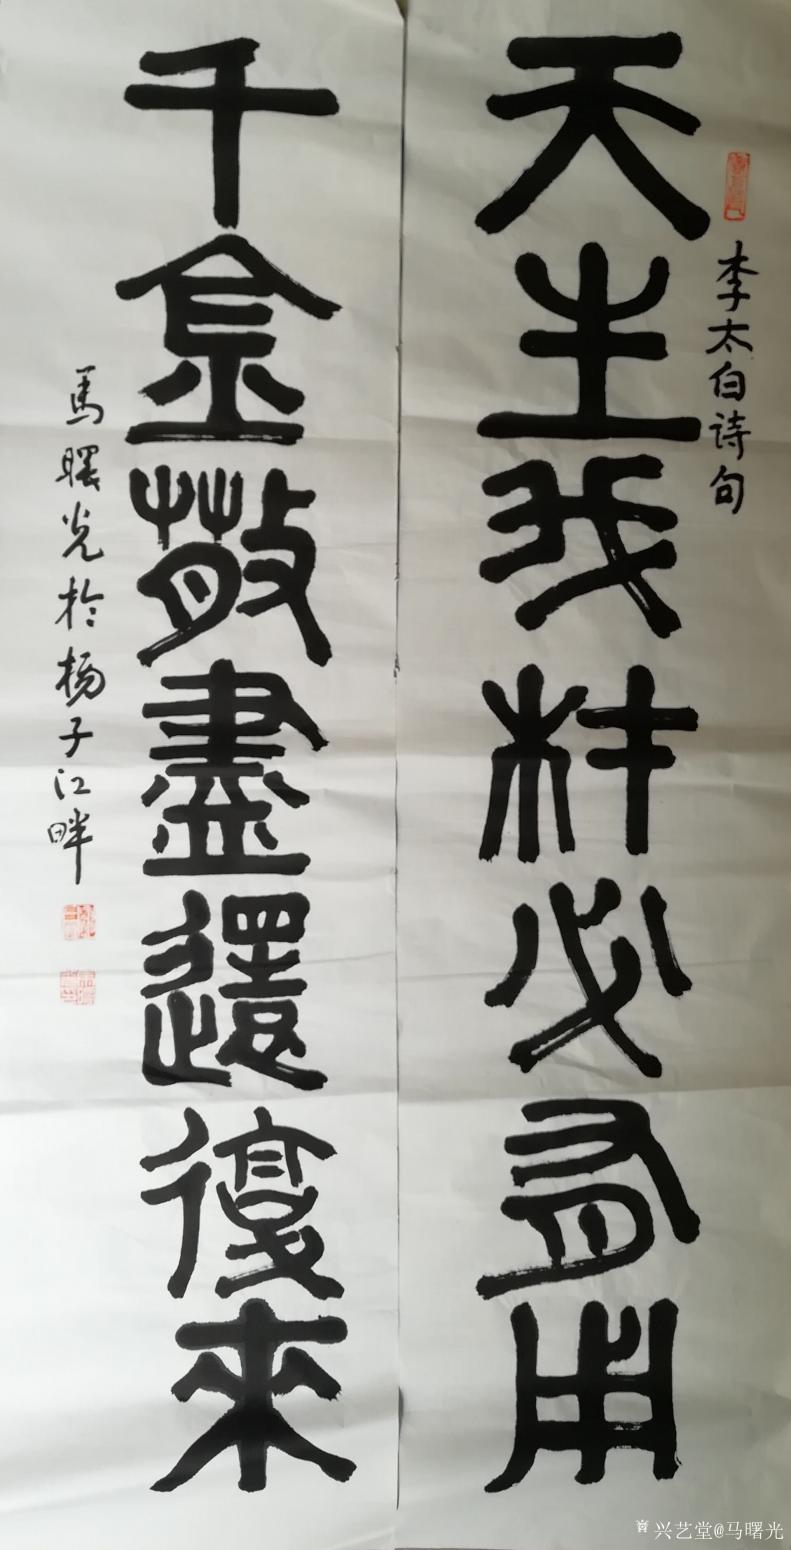 天生我材必有用
李太白诗句
千金散盡還復來
馬曙光於楊子江畔
兴艺堂@马曙光